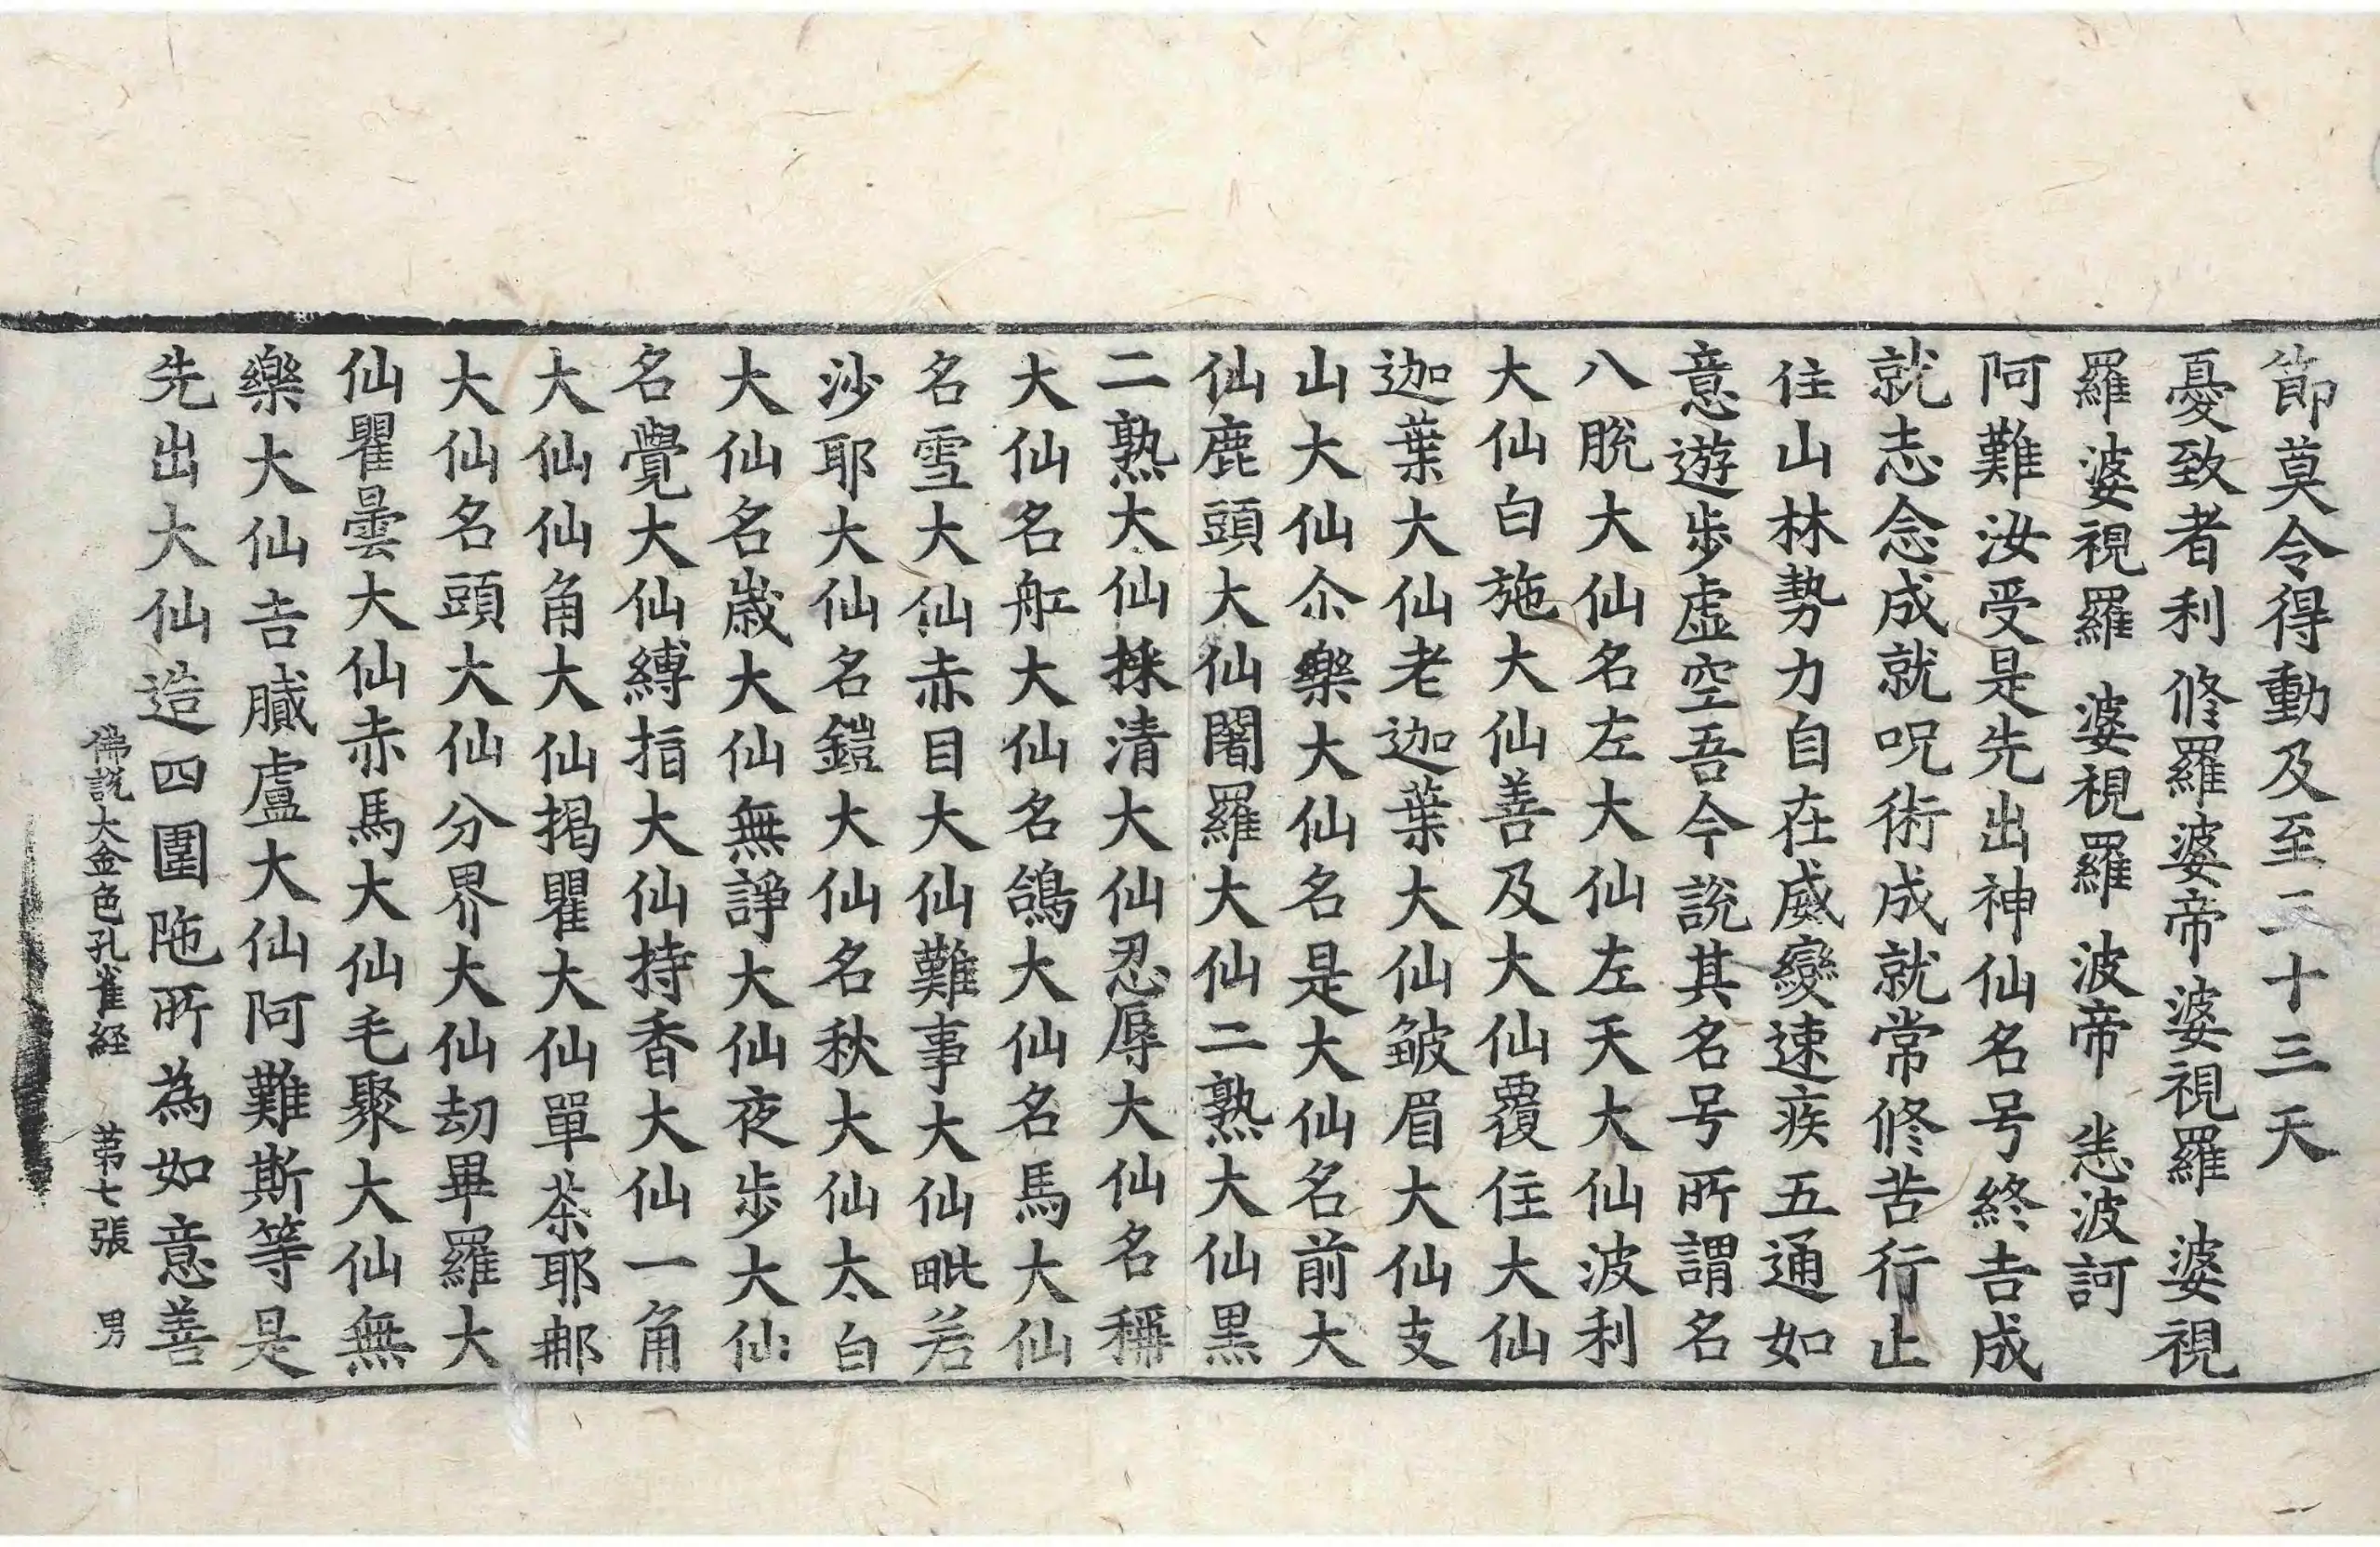 節莫令得動及至三十三天
憂致者利 修羅婆帝婆視羅 婆視
羅 婆視羅 婆視羅 波帝 恙波訶
阿難汝受是先出神仙名号終吉成
就志念成就呪術成就常修苦行止
住山林勢力自在威變速疾五通如
意遊步虛空吾今說其名号所謂名
八脫大仙名左大仙左天大仙波利
大仙白施大仙善及大仙覆住大仙
迦葉大仙老迦葉大仙皺眉大仙支
山大仙尒樂大仙名是大仙名前大
仙鹿頭大仙闍羅大仙二熟大仙黑
二熟大仙採清大仙忍辱大仙名稱
大仙名舡大仙名鴿大仙名馬大仙
名雪大仙赤目大仙難事大仙毗若
沙耶大仙名鎧大仙名秋大仙太白
大仙名歲大仙無諍大仙夜步大仙
名覺大仙縛指大仙持香大仙一角
大仙仙角大仙揭瞿大仙單茶耶那
大仙名頭大仙分界大仙劫畢羅大
仙瞿曇大仙赤馬大仙毛聚大仙無
樂大仙吉臟盧大仙阿難斯等是
先出大仙造四圍陁所為如意善
佛說大金色孔雀経 苐七張 男